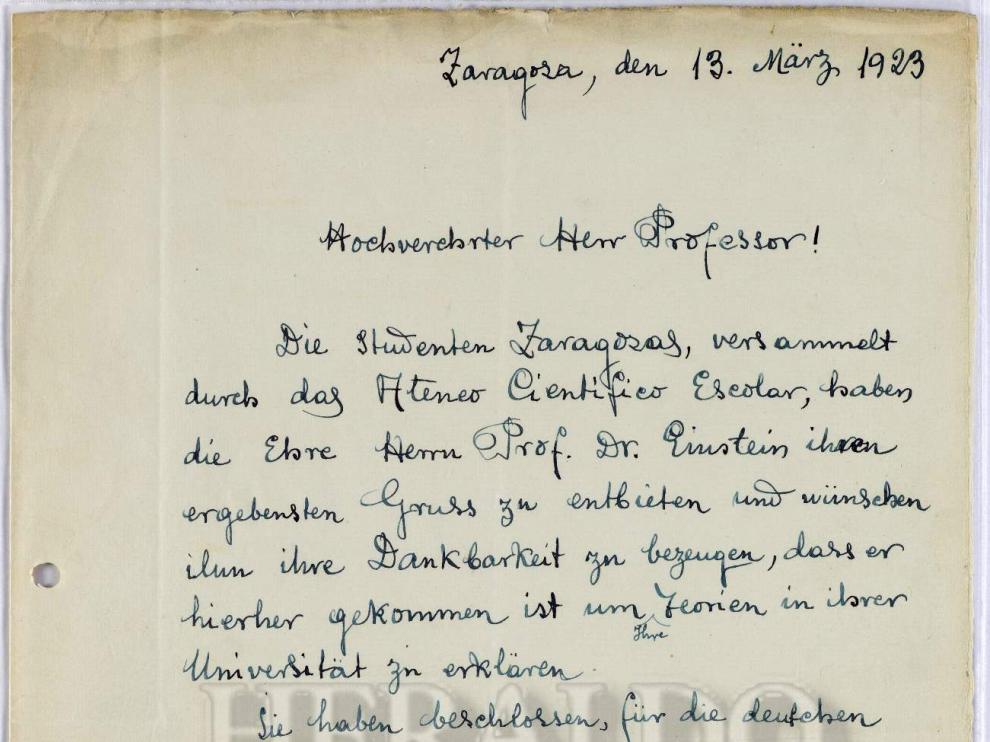 Zaragoza, den 13. März 1923
Hochverehrter Herr Professor!
Die Studenten Zaragozas, versammelt
durch das Ateneo Cientifico Escolar, haben
die Ehre Herrn Prof. Dr. Einstein ihren
ergebensten Gruss zu entbieten und wünschen
ihm ihre Dankbarkeit zu bezeugen, dass er
hierher gekommen ist um Teorien in ihrer
Ihre
Universität zu erklären.
Sie haben beschlossen, für die deutschen
HERALDO